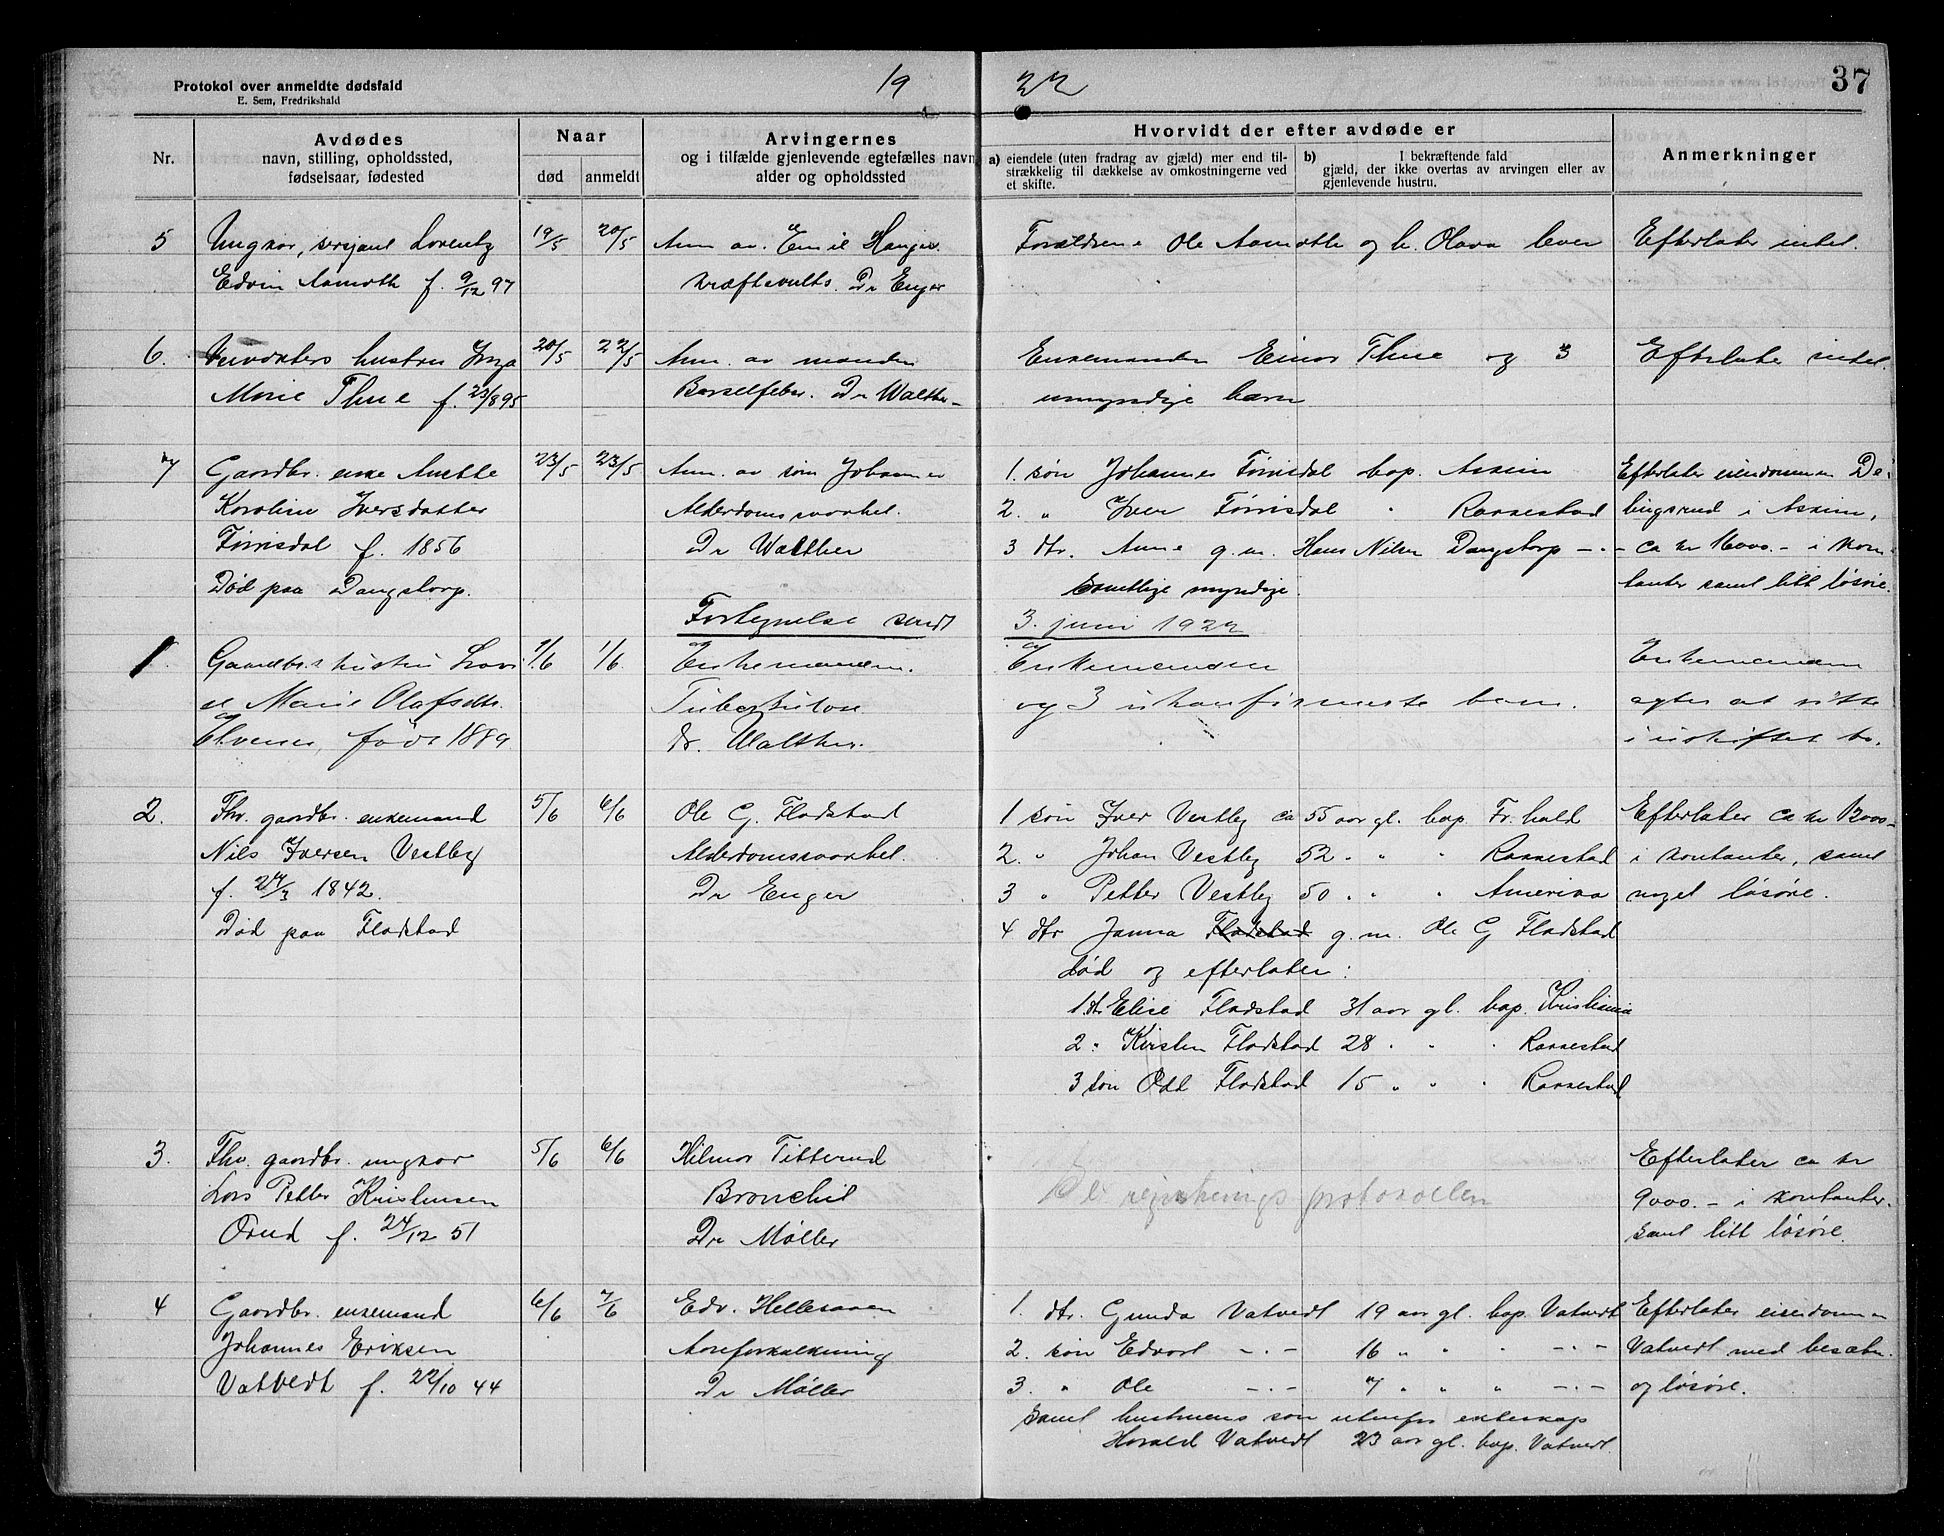 Protokol over anmeldte dødsfald
E. Sem, Fredrikshald
19 22
37
Nr.
Avdødes
navn, stilling, opholdssted,
fødselsaar, fødested
Naar
død
anmeldt
Arvingernes
og i tilfælde gjenlevende egtefælles navn,
alder og opholdssted
Hvorvidt der efter avdøde er
a) eiendele (uten fradrag av gjæld) mer end til-
strækkelig til dækkelse av omkostningerne ved
et skifte.
b) I bekræftende fald
gjæld, der ikke overtas av arvingen eller av
gjenlevende hustru.
Anmerkninger
5 Ungkar, serjant Lorentz 19/5 20/5 Anm av. Emil Forældrene Ole Aamoth og h. Olava lever Efterlater intet.
Edvin Aamoth f. 9/12 97 Dr Enger
6. hustru Inga 20/5 22/5 Anm. av manden Enkemanden Einar Thue og 3 Efterlater intet.
Marie Thue f. 23/8 95 Barselfeber. Dr Walther umyndige barn
7 Gaardbr. enke Anette 23/5 23/5 Anm. av søn Johannes 1. søn Johannes Tørrisdal bop. Askim Efterlater eiendommen
Karoline Iversdatter Alderdomssvakhet. 2. " Iver Tørrisdal " Rakkestad i Askim,
Tørrisdal f. 1856 Dr Walther 3 dtr. Anne g.m. Hans Nilsen Dangstorp -"- ca kr - i kon-
Død paa Dangstorp. samtlige myndige. tanter samt litt løsøre.
Fortegnelse sendt 3. juni 1922
1. Gaardbr.s hustru Lovi 1/6 1/6 Enkemanden. Enkemanden Enkemanden
se Marie Olafsdtr. Tuberkulose og 3 ukonfirmerte barn. agter at sitte
født 1889 dr. Walther. i uskiftet bo.
2. Fhv. gaardbr. enkemand 5/6 6/6 Ole G. Fladstad 1 søn Iver Vestby ca 55 aar gl. bop. Fr.hald Efterlater ca kr
Nils Iversen Vestby Alderdomssvakhet. 2. " Johan Vestby 52 " " " Rakkestad i kontanter, samt
f. 24/3 1842. Dr Enger 3 " Petter Vestby 50 " " " Amerika noget løsøre.
Død paa Fladstad 4 dtr Janna Fladstad g.m. Ole G Fladstad
død og efterlater:
1. dtr Elise Fladstad 31 aar gl. bop. Kristiania
2. " Kirsten Fladstad 28 " " " Rakkestad
3 søn Odd Fladstad 15 " " " Rakkestad
3. Fhv. gaardbr. ungkar 5/6 6/6 Hilmar Titterud Efterlater ca kr
Lars Petter Kristensen Bronchit Se registreringsprotokollen 9000.- i kontanter
Orud f. 24/12 51 Dr Møller samt litt løsøre.
4 Gaardbr. enkemand 6/6 7/6 Edv. Hellesaaen 1. dtr. Gunda Vatvedt 19 aar gl. bop. Vatvedt Efterlater eiendommen
Johannes Eriksen Aareforkalkning 2. søn Edvart -"- 16 " " " -"- Vatvedt med besætn.
Vatvedt f. 22/10 44 Dr Møller 3. " Ole -"- 7 " " " -"- og løsøre.
samt hustruens søn utenfor ekteskap
Harald Vatvedt 23 aar gl. bop. Vatvedt.